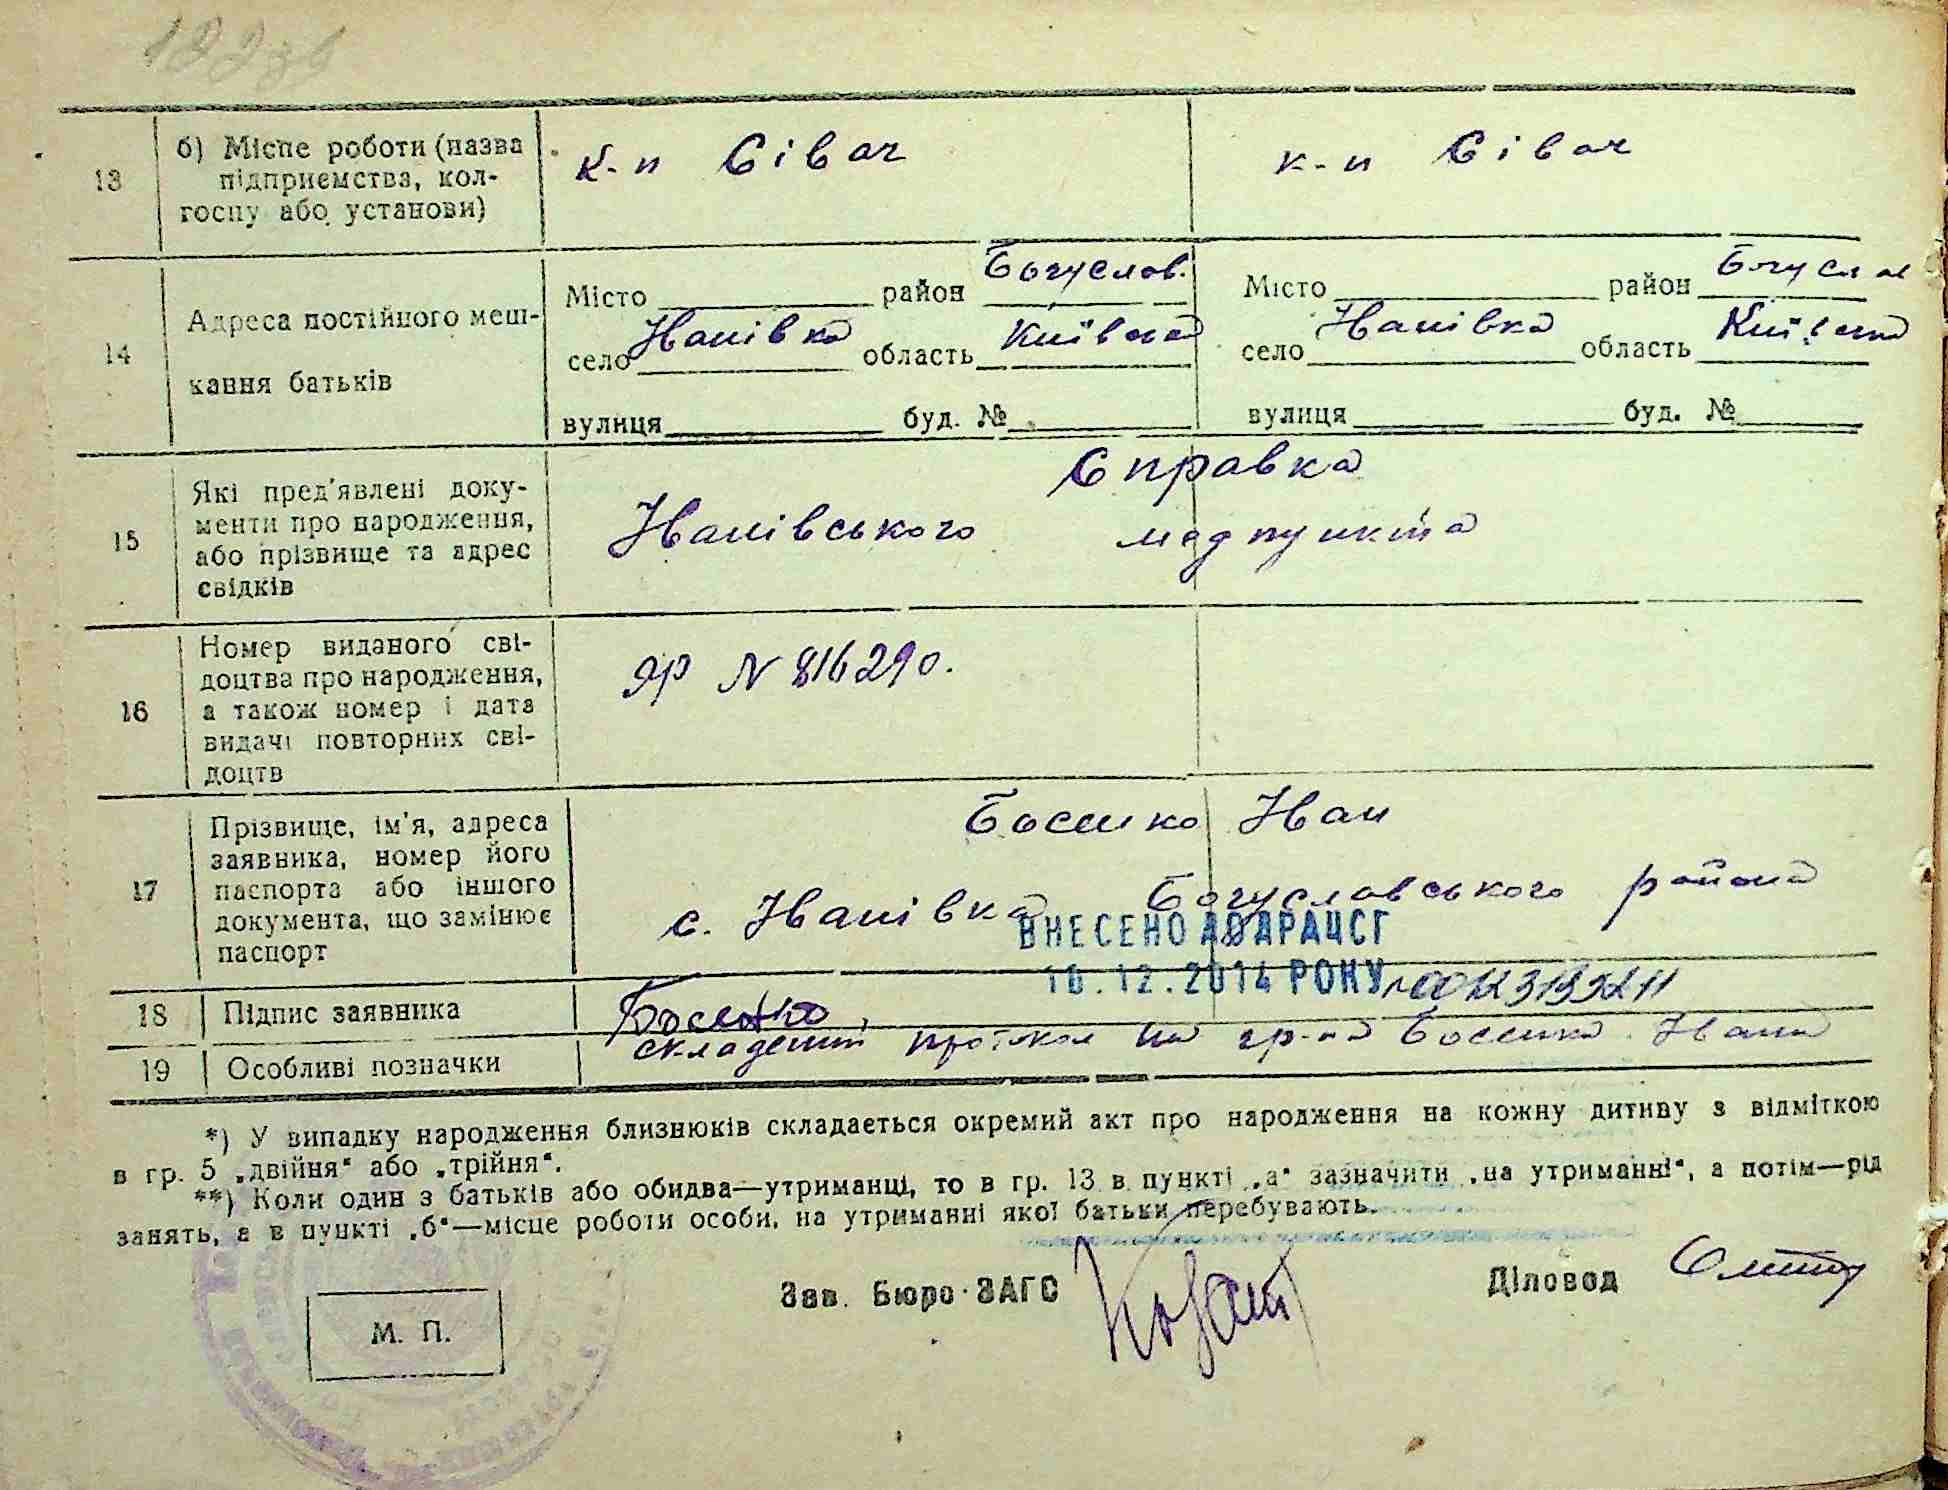 13
б) Місце роботи (назва
підприємства, кол-
госпу або установи)
к-п Сівач
к-п Сівач
14
Адреса постійного меш-
кання батьків
Місто район Богуслав.
село Іванівка область Київська
вулиця буд. №
Місто район Богуслав
село Іванівка область Київська
вулиця буд. №
15
Які пред'явлені доку-
менти про народження,
або прізвище та адрес
свідків
Справка
Іванівського медпункта
16
Номер виданого сві-
доцтва про народження,
а також номер і дата
видачі повторних сві-
доцтв
ЯР N 816290.
17
Прізвище, ім'я, адреса
заявника, номер його
паспорта або іншого
документа, що замінює
паспорт
Босенко Іван
с. Іванівка Богуславського района
ВНЕСЕНО ДО ДРАЦСГ
10.12.2014 РОКУ
18
Підпис заявника
Босенко
19
Особливі позначки
складений протокол на гр-на Босенка Івана
*) У випадку народження близнюків складається окремий акт про народження на кожну дитину з відміткою
в гр. 5 „двійня“ або „трійня“.
**) Коли один з батьків або обидва—утриманці, то в гр. 13 в пункті „а“ зазначити „на утриманні“, а потім—рід
занять, а в пункті „б“—місце роботи особи, на утриманні якої батьки перебувають.
Зав. Бюро ЗАГС
Діловод
М. П.